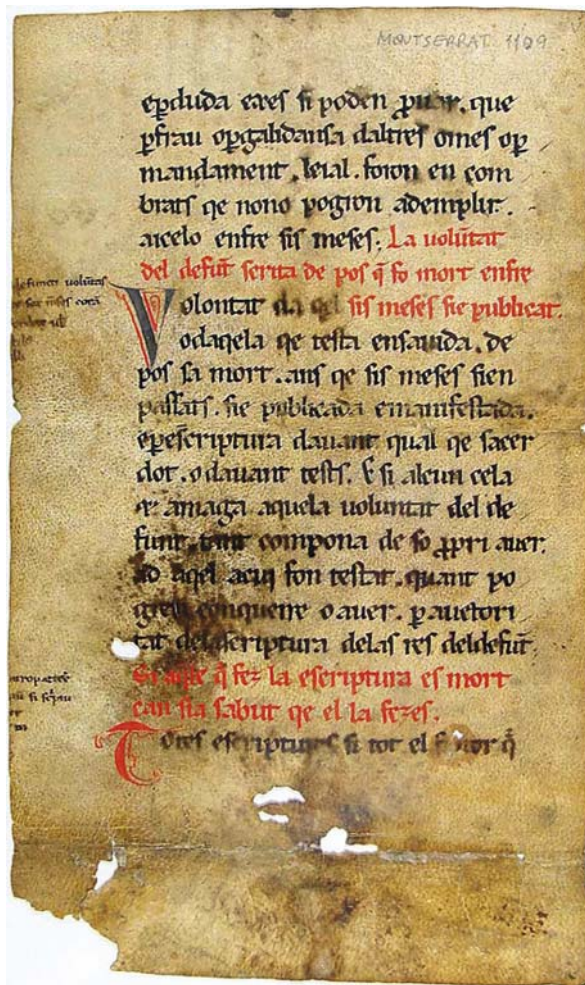 MONTSERRAT 1109
eꝑduda eres si poden ꝓuar. que
ꝑfrau oꝑgabdansa daltres omes oꝑ
mandament. leial. foron en com
brats qe nono pogron ademplir.
aicelo enfre sis meses. La uolũtat
del defũt scrita de pos q̃ fo mort enfre
Volontat sis meses sie publicat.
odaqela qe testa ensauida. de
pos sa mort. ans qe sis meses sien
passats. sie publicada emanifestada.
eꝑescriptura dauant qual qe sacer
dot. o dauant tests. E si alcun cela
amaga aquela uoluntat del de
funt. tant compona de so ꝓpri auer.
ad aqel acui fon testat. quant po
conquerre o auer. ꝑ auctori
tat delescriptura delas res deldefũt.
Si q̃ fez la escriptura es mort
can sia sabut qe el la fezes.
Totes escriptures si tot el q̃